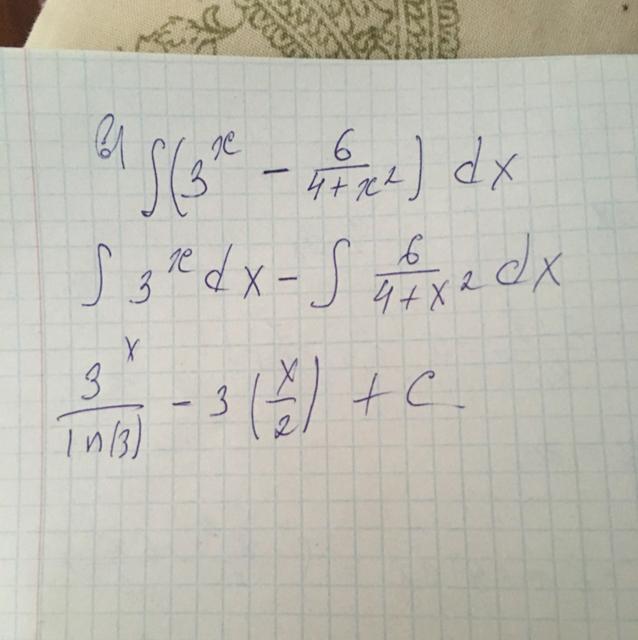 б) ∫(3^x - 6/(4+x²)) dx
∫ 3^x dx - ∫ 6/(4+x²) dx
3^x/ln(3) - 3(x/2) + C